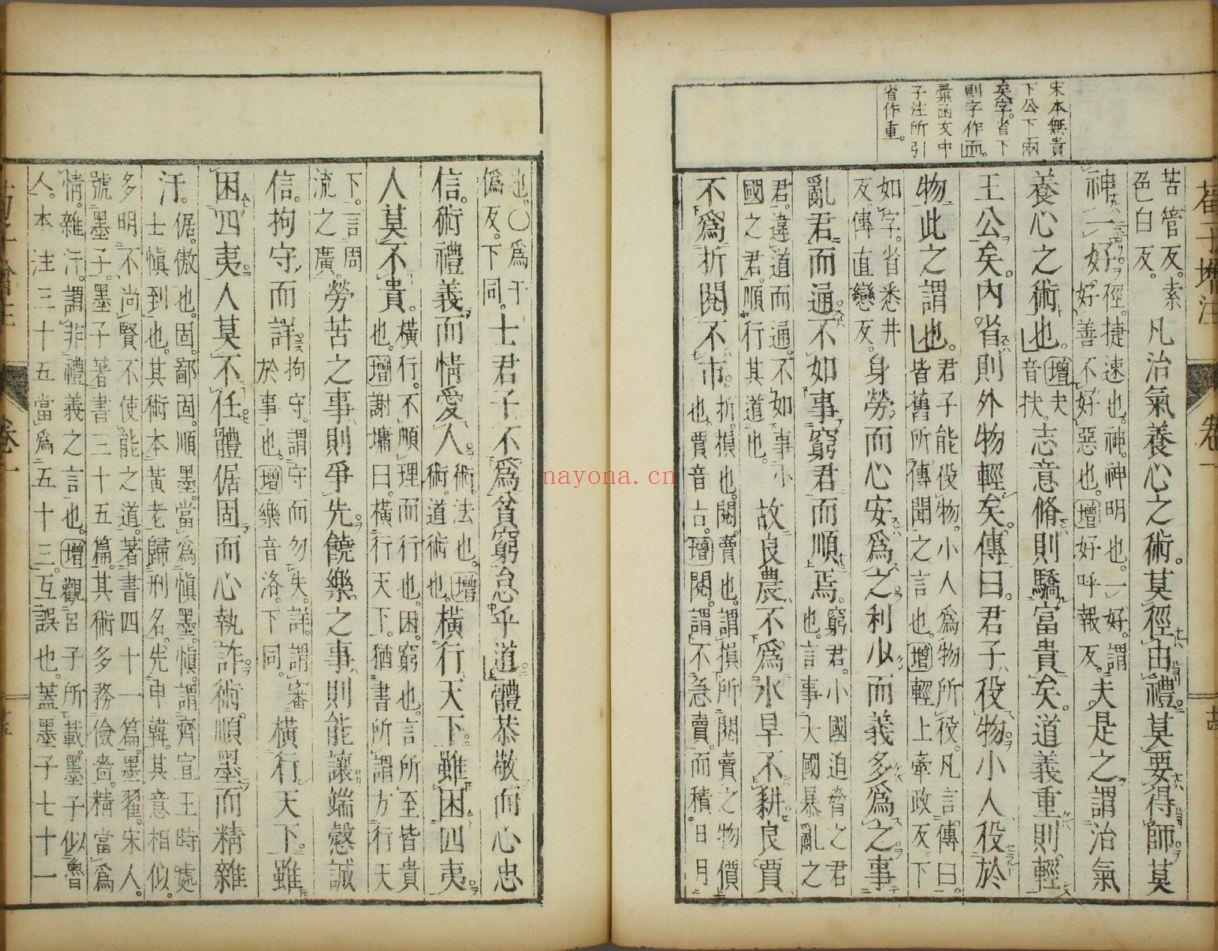 荀子增注
卷一
宋本無貴
下公下兩
矣字省下
則字作而
彙函文中
子注所引
省作重。
苦管反。索
色白反。
凡治氣養心之術。莫徑由禮。莫要得師。莫
神一好。
徑。捷速也。神。神明也。一好。謂
好善不好惡也。增好呼報反。
夫是之謂治氣
養心之術也。
增夫
音扶。
志意脩則驕富貴矣。道義重則輕
王公矣。內省則外物輕矣。傳曰。君子役物小人役於
物此之謂也。
君子能役物。小人爲物所役。凡言傳曰。
皆舊所傳聞之言也。增輕上牽政反。下
如字。省悉井
反。傳直戀反。
身勞而心安爲之利少而義多爲之事
亂君而通不如事窮君而順焉。
窮君。小國迫脅之君
也。言事大國暴亂之
君。違道而通。不如事小
國之君。順行其道也。
故良農不爲水旱不耕良賈
不爲折閱不市。
折。損也。閱。賣也。謂損所閱賣之物價
也。賈音古。增閱。謂不急賣。而積日月
也。〇爲于
僞反。下同。
士君子不爲貧窮怠乎道體恭敬而心忠
信。術禮義而情愛人。
術。法也。增
術。道術也。
橫行天下。雖困四夷
人莫不貴。
橫行。不順理而行也。困。窮也。言所至皆貴
也。增謝墉曰。橫行天下。猶書所謂方行天
下。言周
流之廣。
勞苦之事則爭先。饒樂之事則能讓端愨誠
信。拘守而詳。
拘守。謂守而勿失。詳。謂審
於事也。增樂音洛。下同。
橫行天下。雖
困四夷人莫不任體倨固而心執詐術順墨而精雜
汙。
倨。傲也。固。鄙固。順墨。當爲愼墨。愼。謂齊宣王時處
士愼到也。其術本黃老歸刑名。先申韓其意相似。
多明不尚賢不使能之道。著書四十一篇。墨翟。宋人。
號墨子。墨子著書三十五篇。其術多務儉嗇。精當爲
情。雜汙。謂非禮義之言也。增觀呂子所載。墨子似魯
人。本注三十五當爲五十三。互誤也。蓋墨子七十一